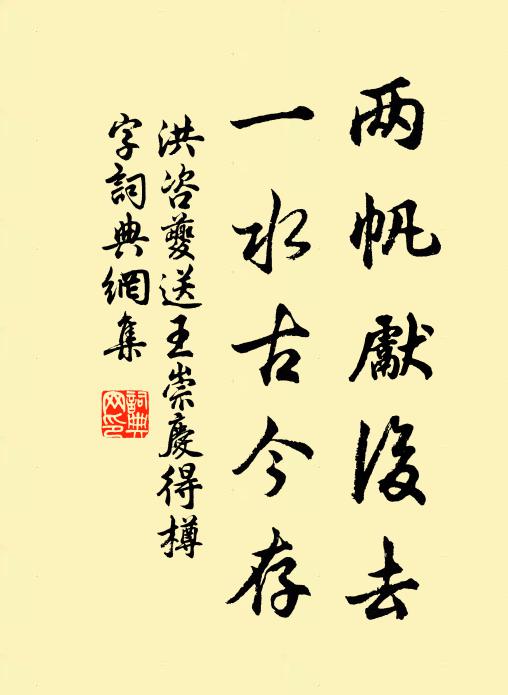 两帆獻後去
一水古今存
洪咨夔送王崇慶得樽
字詞典網集
詞典网印